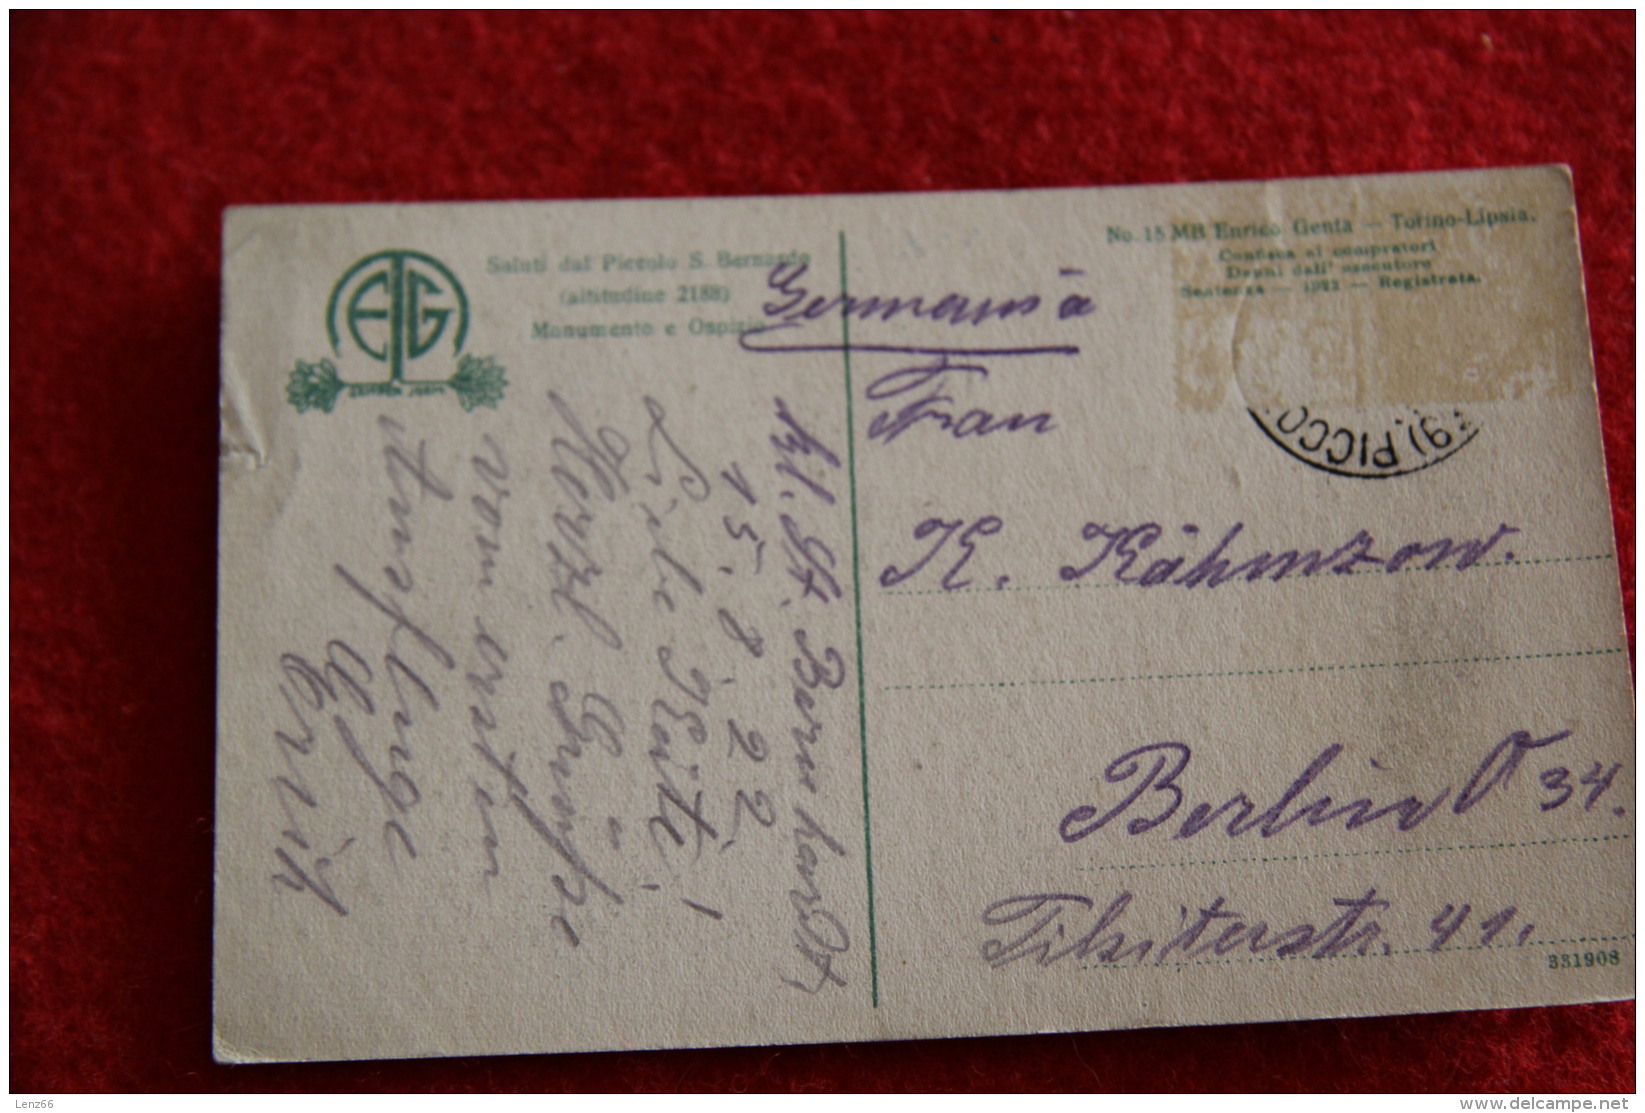 Saluti dal Piccolo S. Bernardo
(altitudine 2188)
Monumento e Ospizio
EG
SEMPER
No. 15 MB Enrico Genta — Torino-Lipsia.
Confisca ai compratori
Danni dall' esecutore
Sentenza — 1922 — Registrata.
PICCO
Germania
Frau
K. Kähmzow.
Berlin O 34.
Tilsiterstr. 41.
331908
Kl. St. Bernhardt,
15. 8. 22
Liebe Käti!
Herzl. Grüße
vom ersten
Ausfluge
Erich
Lenz66
www.delcampe.net